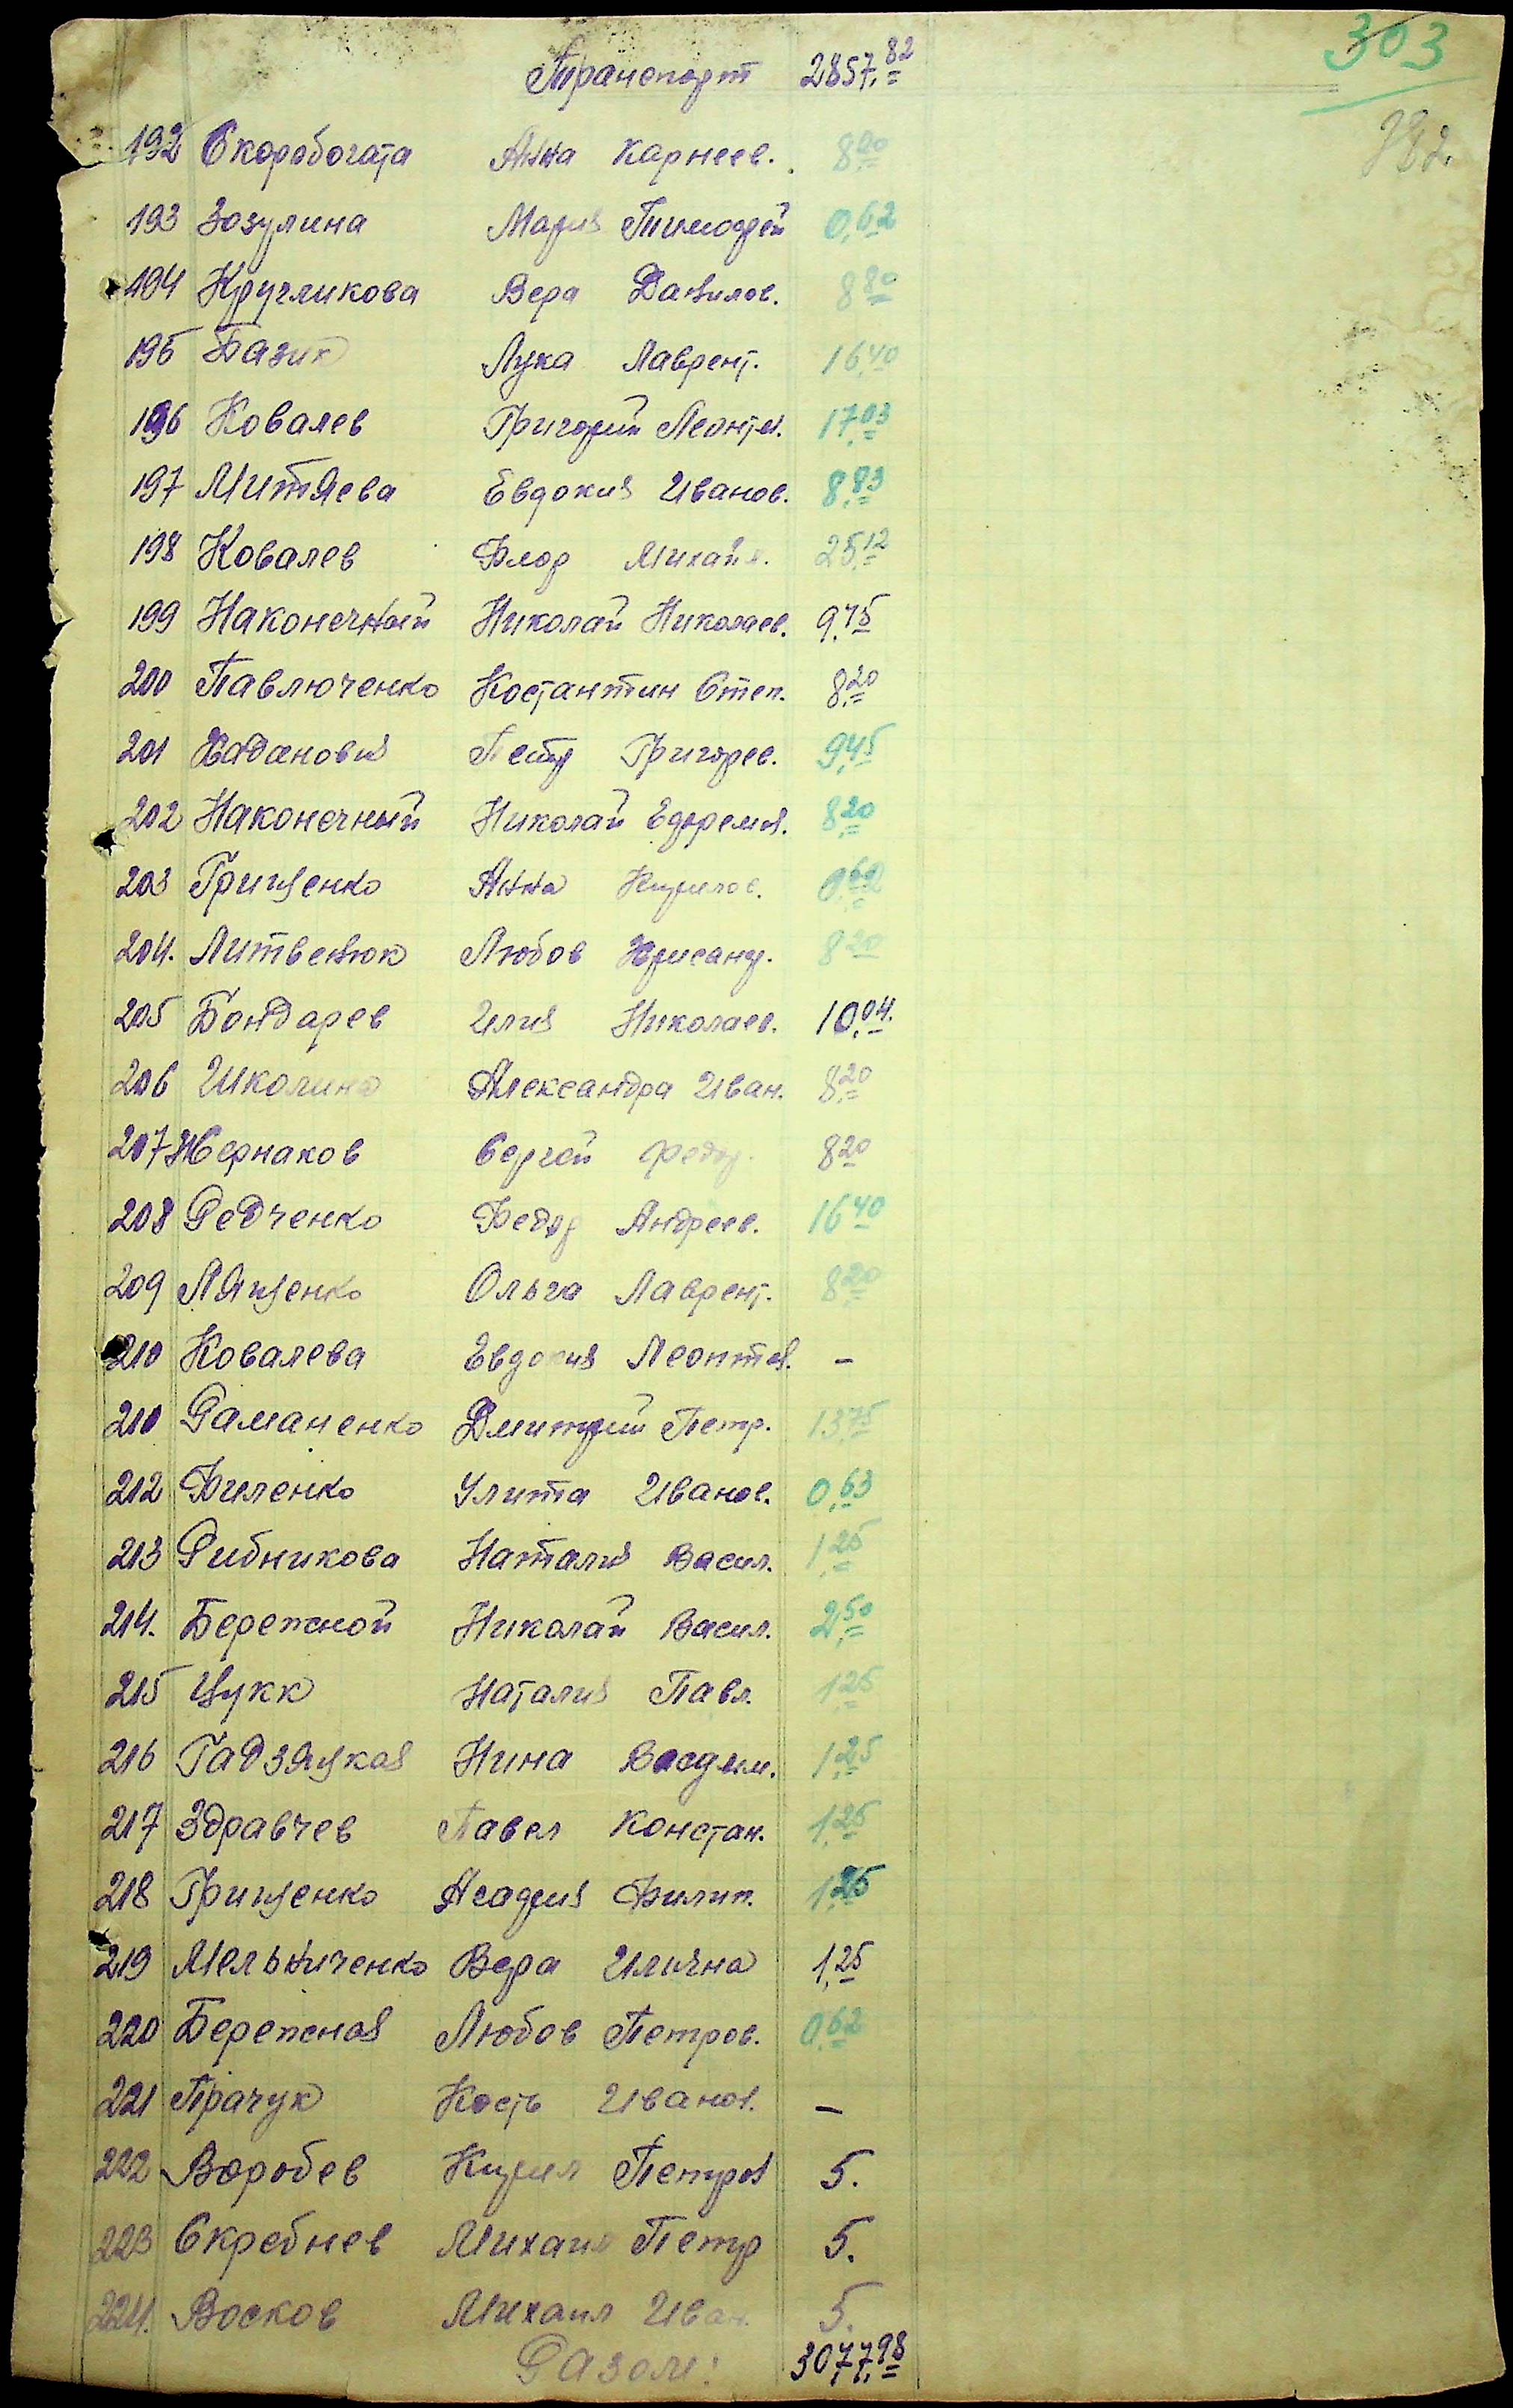 303
Транспорт 2857,82
192 Скоробогата Анна Карнеев. 8,20
193 Зозулина Мария Тимофей 0,62
194 Кругликова Вера Данилов. 8,80
195 Базик Лука Лаврент. 16,40
196 Ковалев Григорий Леонтι. 17,03
197 Митяева Евдокия Иванов. 8,83
198 Ковалев Флор Михайл. 25,12
199 Наконечный Николай Николаев. 9,45
200 Павлюченко Костантин Степ. 8,20
201 Петр Григорев. 9,45
202 Наконечный Николай Ефремов. 8,20
203 Грищенко Анна Кирилов. 0,62
204. Литвенюк Любов Хрисанф. 8,20
205 Бондарев Илия Николаев. 10,04.
206 Школина Александра Иван. 8,20
207 Жернаков Сергей Федор. 8,20
208 Редченко Федор Андреев. 16,40
209 Лященко Ольга Лаврент. 8,20
210 Ковалева Евдокия Леонтов. –
210 Раманенко Дмитрий Петр. 13,75
212 Филенко Улита Иванов. 0,63
213 Рибникова Наталия Васил. 1,25
214. Бережной Николай Васил. 2,50
215 Цукк Наталия Павл. 1,25
216 Гадзяцкая Нина 1,25
217 Здравчев Павел Констан. 1,25
218 Грищенко Филип. 1,25
219 Мельниченко Вера Илична 1,25
220 Бережная Любов Петров. 0,62
221 Прачук Кость Иванов. –
222 Воробев Кирил Петров 5.
223 Скребнев Михаил Петр 5.
224. Восков Михаил Иван. 5.
Разом: 3077,98